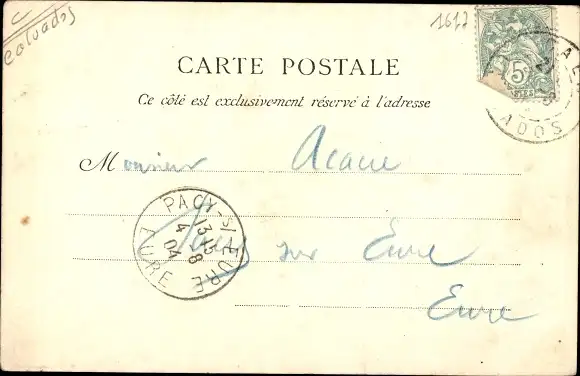 C
Calvados
1617
5
CARTE POSTALE
Ce côté est exclusivement réservé à l'adresse
Monsieur Acacie
sur Eure
Eure
PACY-S/-EURE
13 15
4 -8
04
EURE
CAEN
ADOS